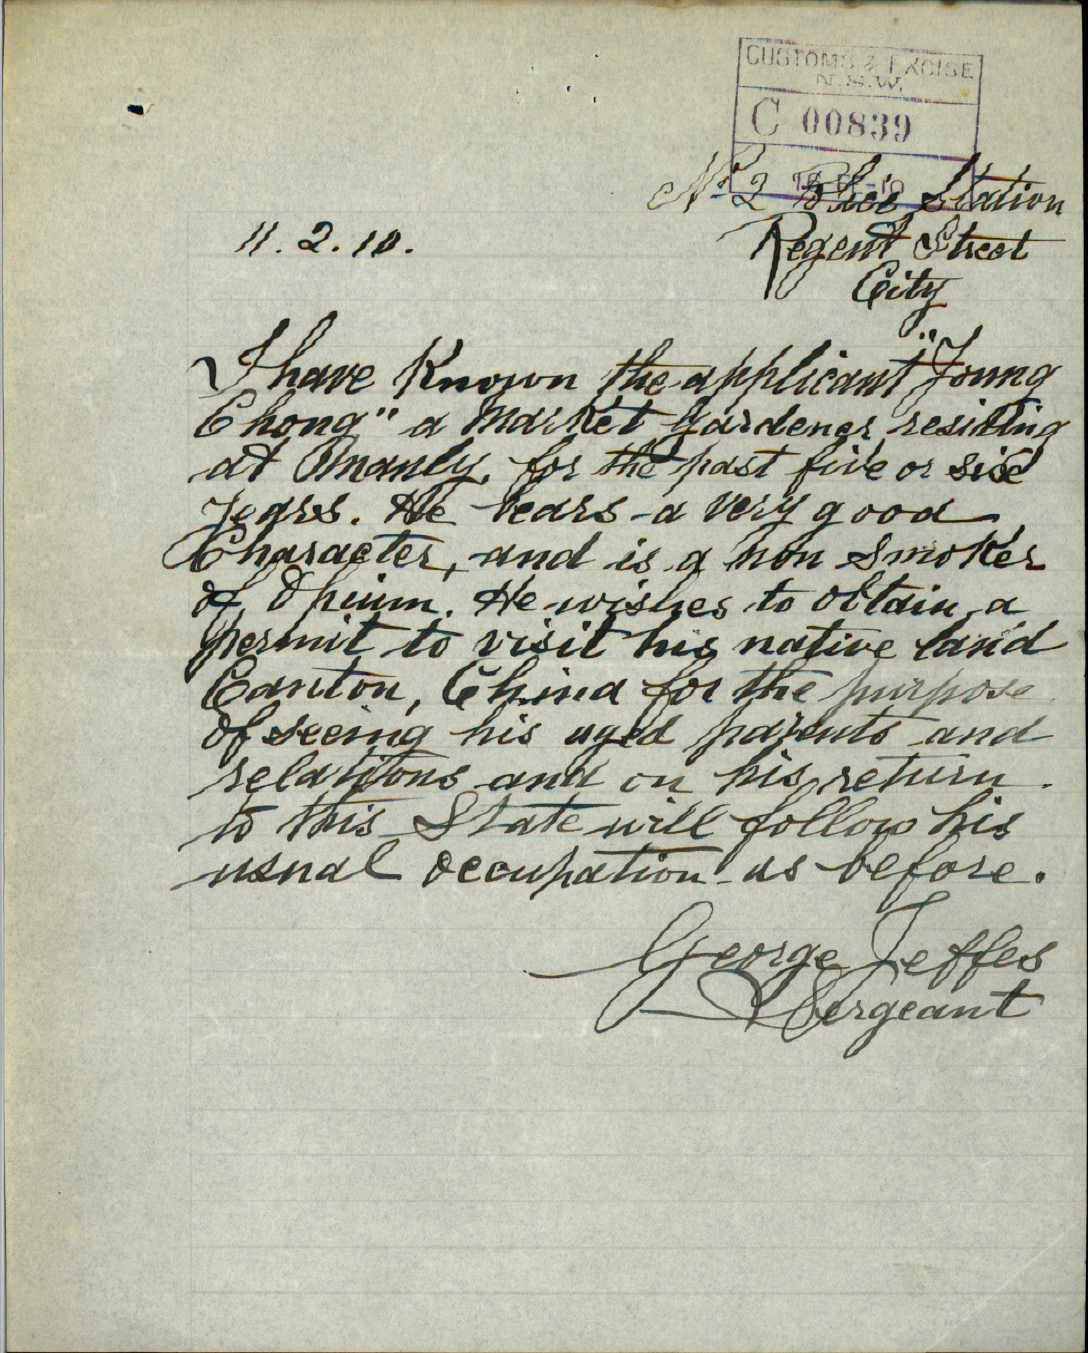 CUSTOMS & EXCISE
N.S.W.
C 00839
No 2 Police Station
11.2.10.
Regent Street
City
I have Known the applicant "Young
Chong" a Market Gardener, residing
at Manly, for the past five or six
Years. He bears a very good
Character, and is a non Smoker
of Opium. He wishes to obtain a
permit to visit his native land
Canton, China for the purpose
of seeing his aged parents and
relations and on his return
to this State will follow his
usual occupation as before.
George Jeffes
Sergeant